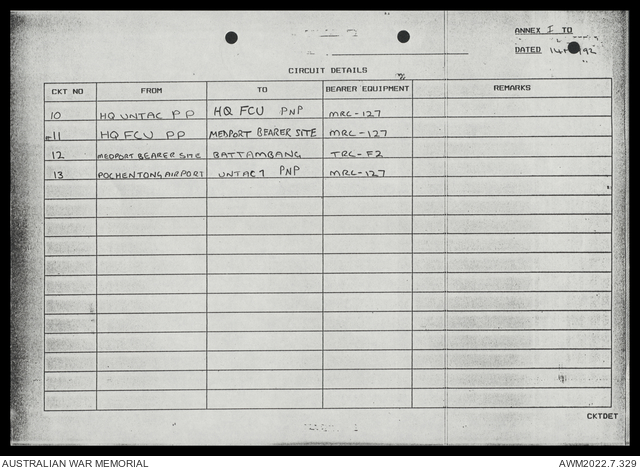 ANNEX I TO
DATED 14 92
CIRCUIT DETAILS
CKT NO FROM TO BEARER EQUIPMENT REMARKS
10 HQ UNTAC PP HQ FCU PNP MRC-127
11 HQ FCU PP MEDPORT BEARER SITE MRC-127
12 MEDPORT BEARER SITE BATTAMBANG TRC-F2
13 POCHENTONG AIRPORT UNTAC 1 PNP MRC-127
CKTDET
AUSTRALIAN WAR MEMORIAL AWM2022.7.329